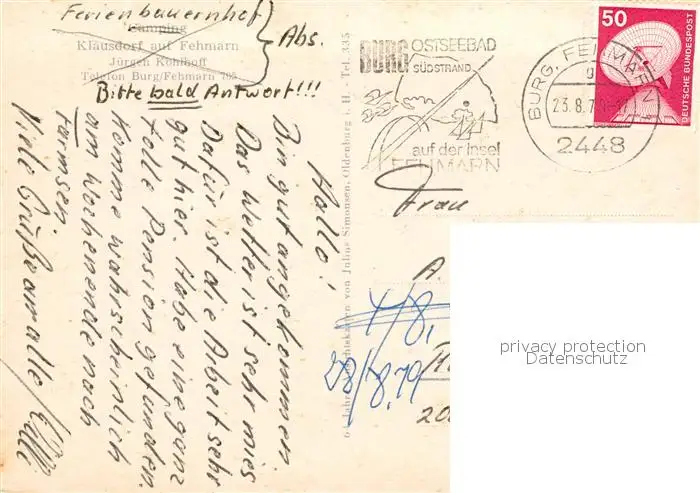 Ferienbauernhof
Camping
Klausdorf auf Fehmarn
Jürgen Kohlhoff
Telefon Burg/Fehmarn 795
Abs.
Bitte bald Antwort!!!
Hallo!
Bin gut angekommen
Das Wetter ist sehr mies
Dafür ist die Arbeit sehr
gut hier. Habe eine ganz
tolle Pension gefunden.
Komme wahrscheinlich
am Wochenende nach
Farmsen
Viele Grüße an alle
Jahre Ansichtskarten von Julius Simonsen, Oldenburg i. H. - Tel. 335
BURG OSTSEEBAD
SÜDSTRAND
auf der Insel
FEHMARN
BURG, FEHMARN
23.8.7
2448
50
DEUTSCHE BUNDESPOST
Frau
A.
4/8,
28/8.79
20
privacy protection
Datenschutz